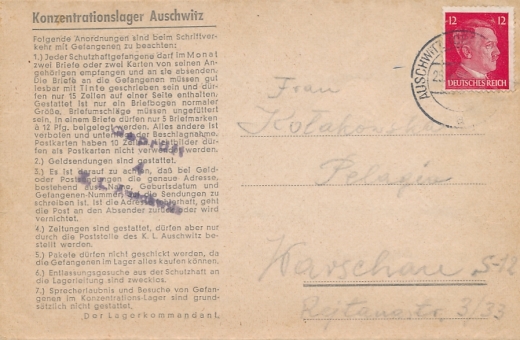 Konzentrationslager Auschwitz
Folgende Anordnungen sind beim Schriftver-
kehr mit Gefangenen zu beachten:
1.) Jeder Schutzhaftgefangene darf im Monat
zwei Briefe oder zwei Karten von seinen An-
gehörigen empfangen und an sie absenden.
Die Briefe an die Gefangenen müssen gut
lesbar mit Tinte geschrieben sein und dür-
fen nur 15 Zeilen auf einer Seite enthalten.
Gestattet ist nur ein Briefbogen normaler
Größe, Briefumschläge müssen ungefüttert
sein. In einem Briefe dürfen nur 5 Briefmarken
à 12 Pfg. beigelegt werden. Alles andere ist
verboten und unterliegt der Beschlagnahme.
Postkarten haben 10 Zeilen. Lichtbilder dür-
fen als Postkarten nicht verwendet werden.
2.) Geldsendungen sind gestattet.
3.) Es ist darauf zu achten, daß bei Geld-
oder Postsendungen die genaue Adresse,
bestehend aus Name, Geburtsdatum und
Gefangenen-Nummer auf die Sendungen zu
schreiben ist. Ist die Adresse fehlerhaft, geht
die Post an den Absender zurück oder wird
vernichtet.
4.) Zeitungen sind gestattet, dürfen aber nur
durch die Poststelle des K. L. Auschwitz be-
stellt werden.
5.) Pakete dürfen nicht geschickt werden, da
die Gefangenen im Lager alles kaufen können.
6.) Entlassungsgesuche aus der Schutzhaft an
die Lagerleitung sind zwecklos.
7.) Sprecherlaubnis und Besuche von Gefan-
genen im Konzentrations-Lager sind grund-
sätzlich nicht gestattet.
Der Lagerkommandant.
geprüft
AUSCHWITZ
12 12
DEUTSCHES REICH
Frau
Pelagia
Warschau S-12
3/33